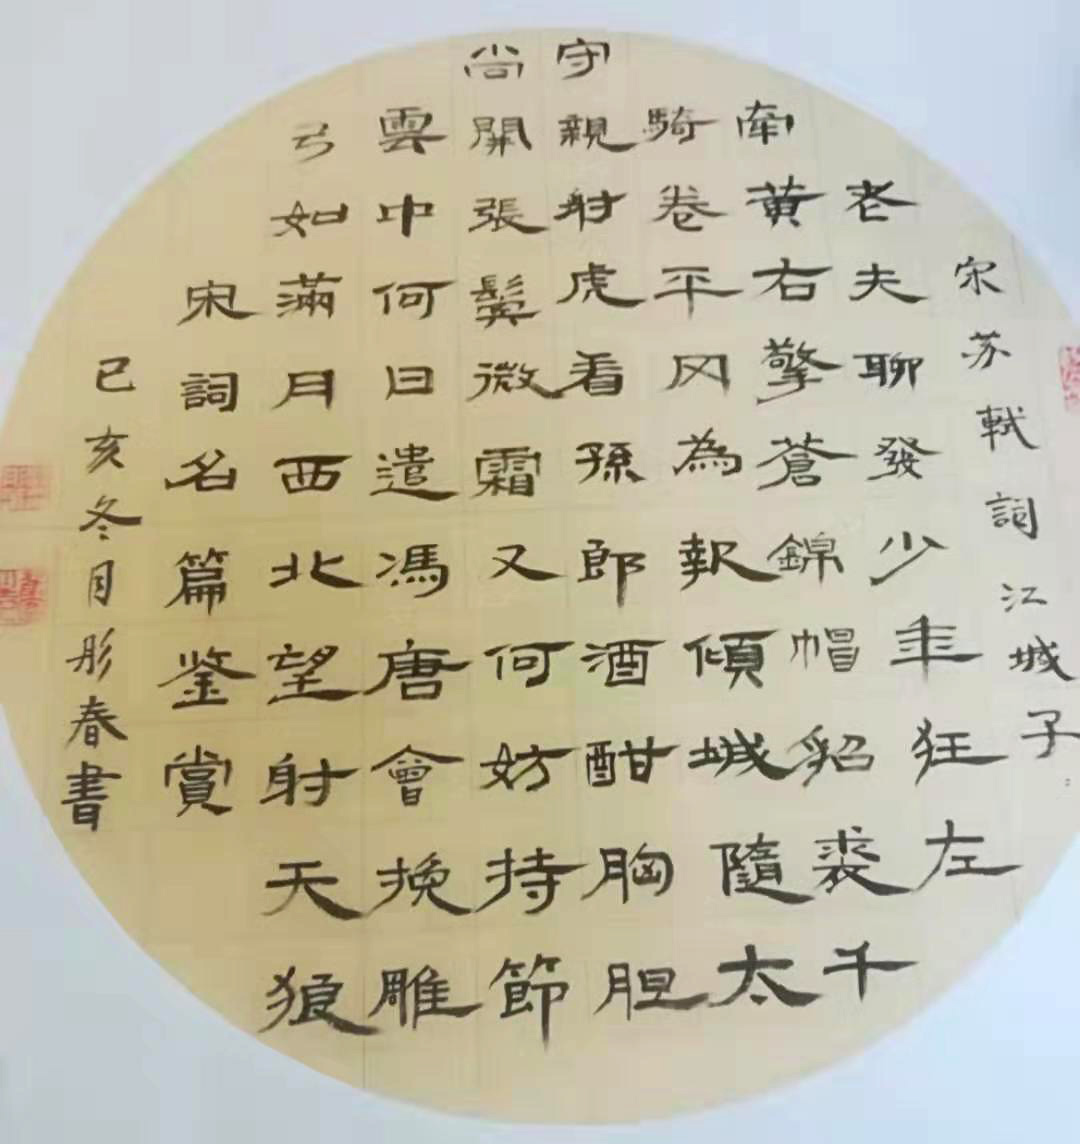 宋苏軾詞江城子:
老夫聊發少年狂左
牵黄右擎蒼錦帽貂裘千
騎卷平冈為報傾城隨太
守親射虎看孫郎酒酣胸胆
尚開張鬓微霜又何妨持節
雲中何日遣馮唐會挽雕
弓如滿月西北望射天狼
宋詞名篇鉴賞
己亥冬月彤春書